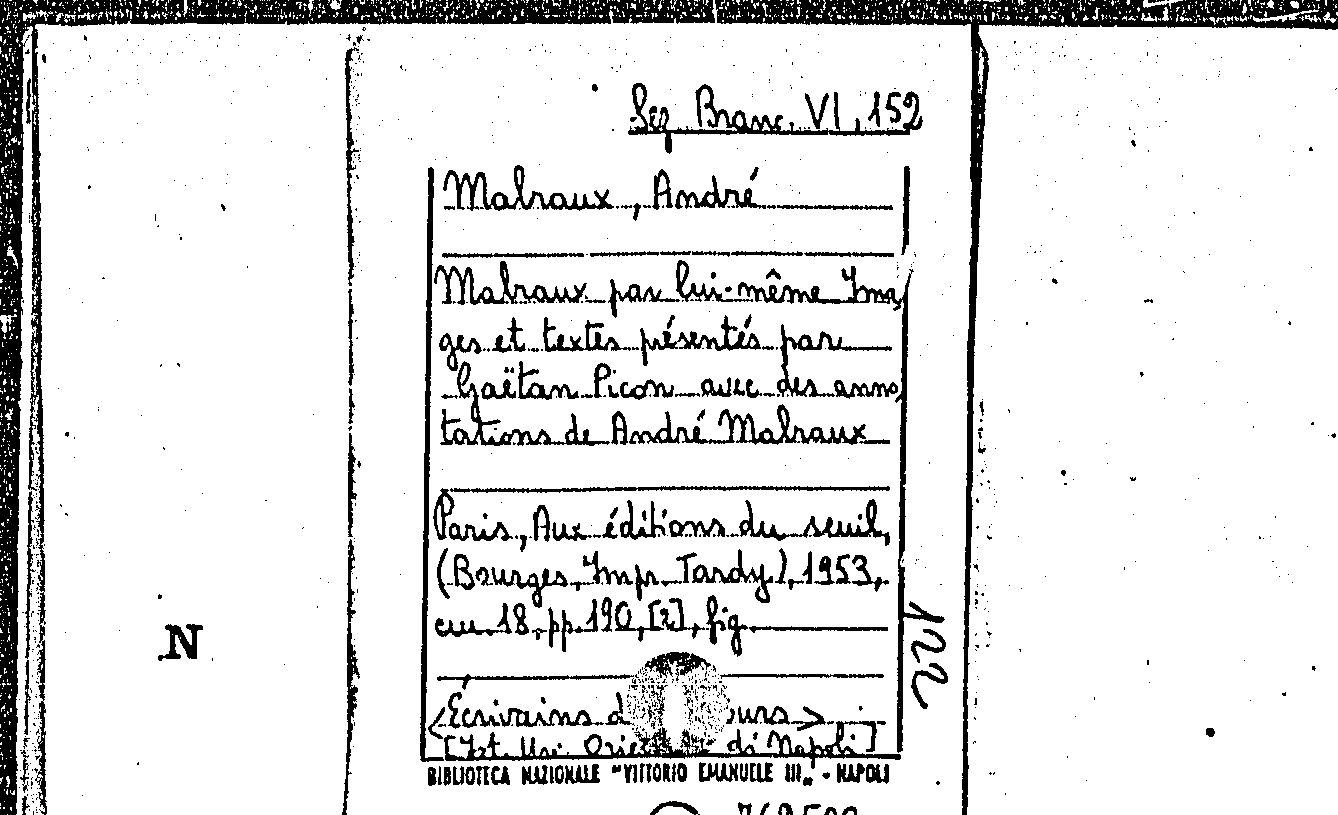 Seg Branc. VI, 152
Malraux, André
Malraux par lui-même Ima
ges et textes présentés par
Gaëtan Picon avec des anno
tations de André Malraux
Paris, Aux éditions du seuil,
(Bourges, Impr. Tardy), 1953,
cm. 18, pp. 190, [2], fig.
122
N
<Écrivains
[Ist. Uni. di Napoli]
BIBLIOTECA NAZIONALE "VITTORIO EMANUELE III" - NAPOLI